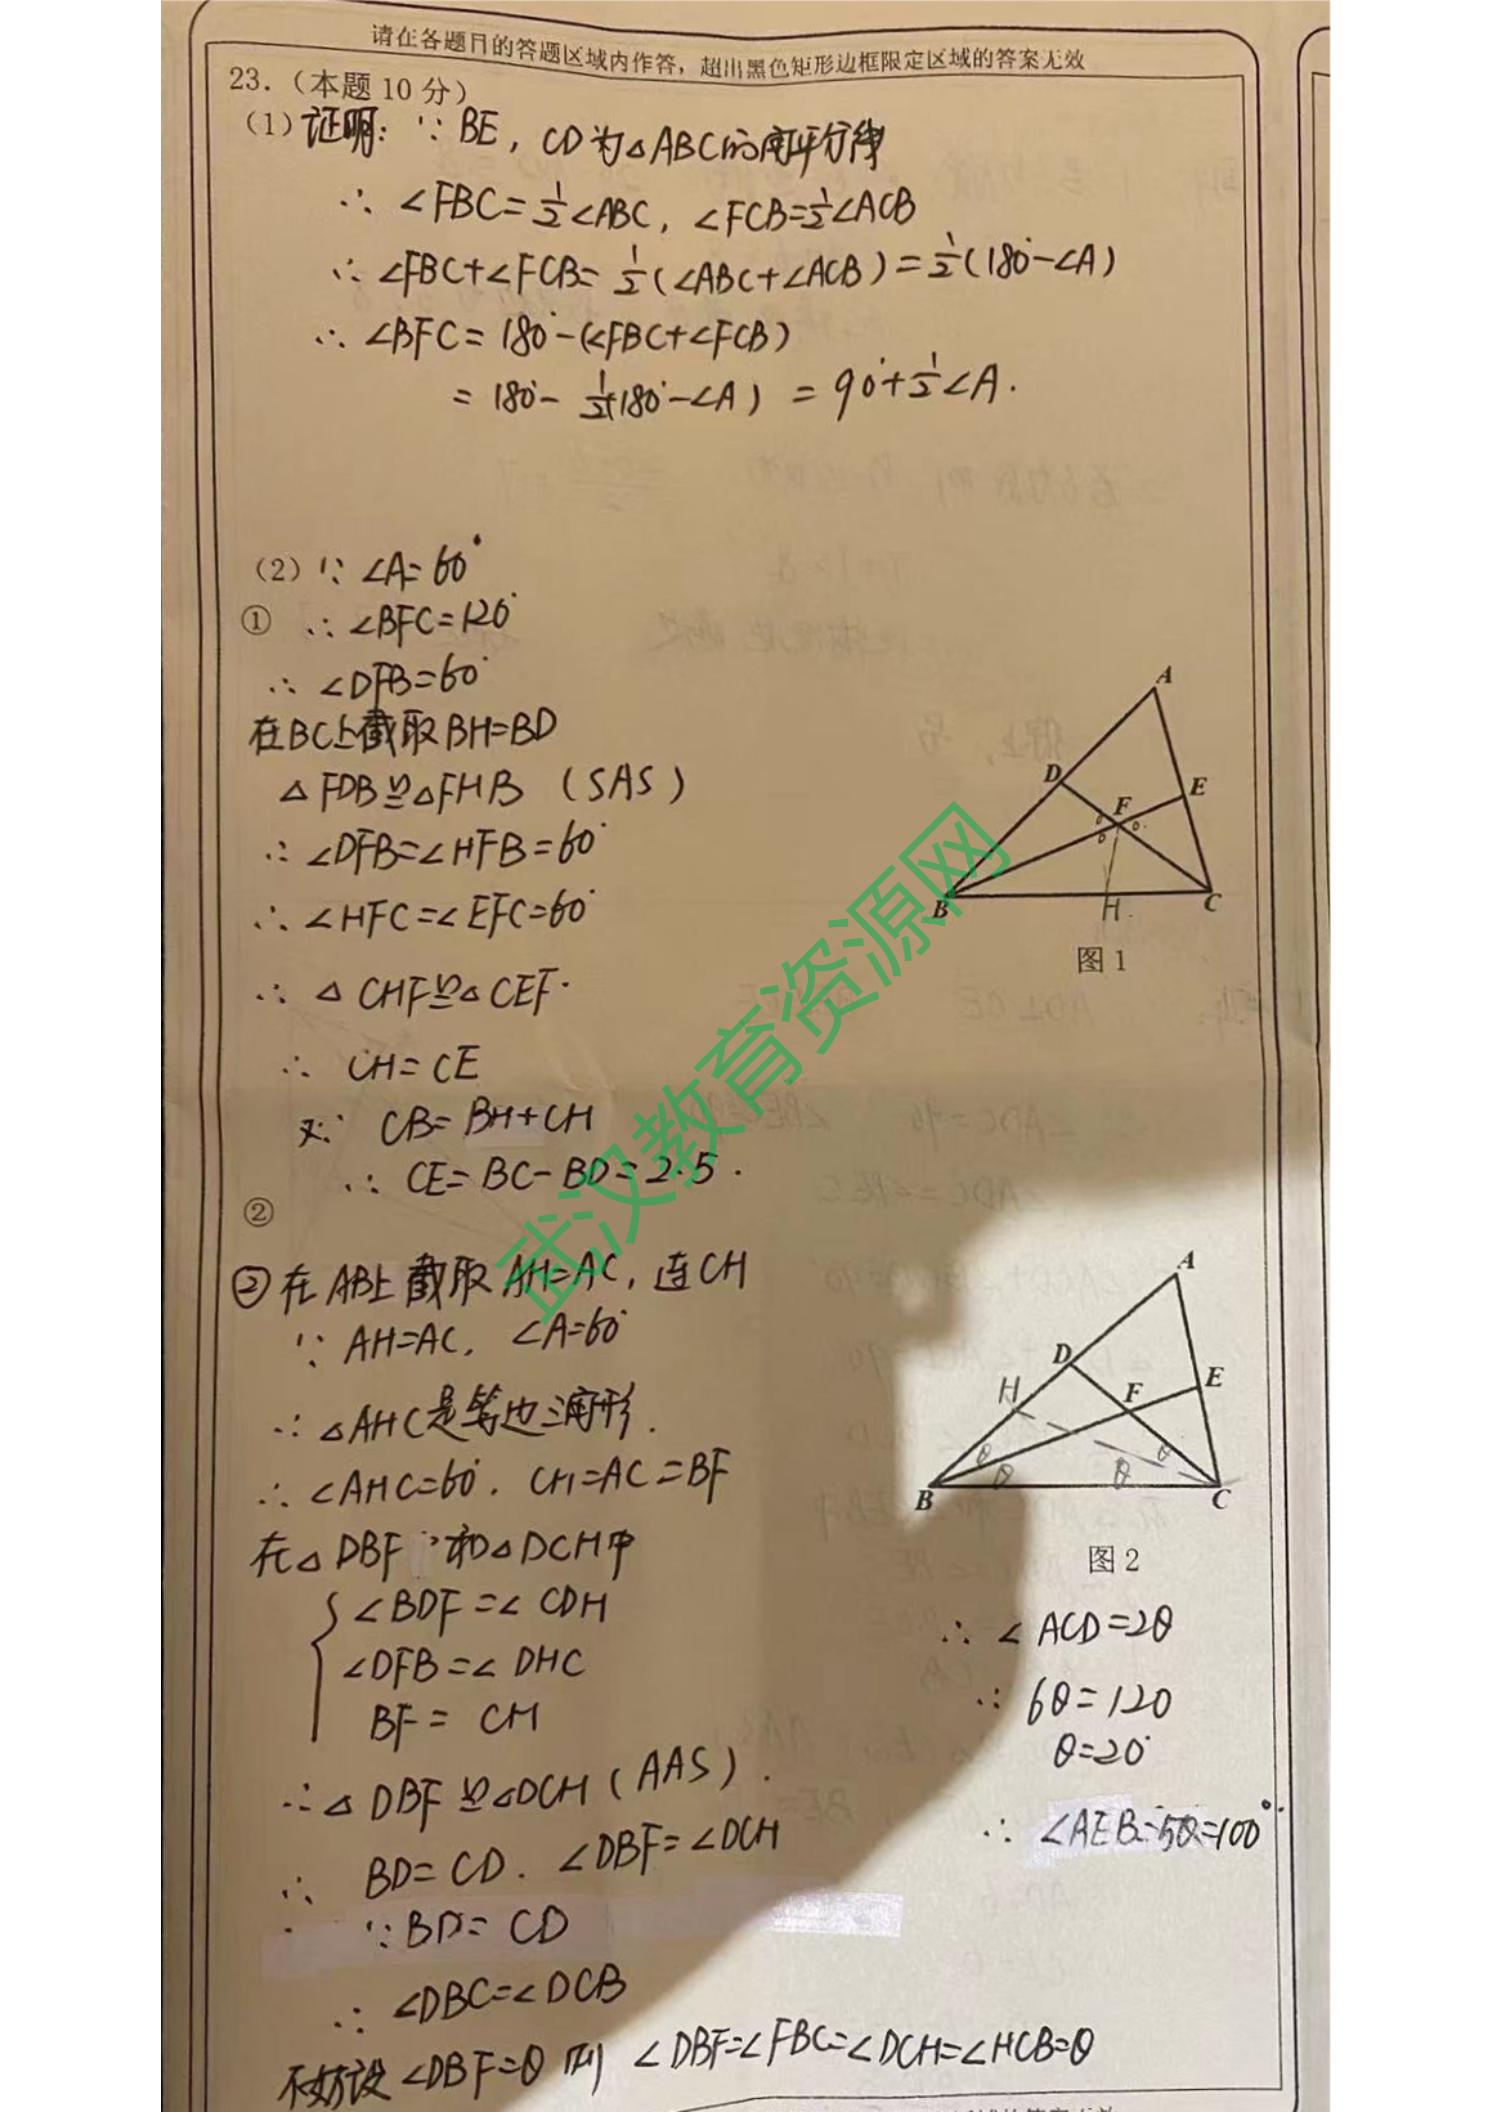 请在各题目的答题区域内作答，超出黑色矩形边框限定区域的答案无效
23.（本题10分）
（1）证明：∵ BE，CD为△ABC的角平分线
∴ ∠FBC=½∠ABC，∠FCB=½∠ACB
∴ ∠FBC+∠FCB=½(∠ABC+∠ACB)=½(180°-∠A)
∴ ∠BFC=180°-(∠FBC+∠FCB)
=180°-½(180°-∠A)=90°+½∠A.
（2）∵ ∠A=60°
① ∴ ∠BFC=120°
∴ ∠DFB=60°
在BC上截取BH=BD
△FDB≌△FHB（SAS）
∴ ∠DFB=∠HFB=60°
∴ ∠HFC=∠EFC=60°
∴ △CHF≌△CEF.
∴ CH=CE
又∵ CB=BH+CH
∴ CE=BC-BD=2.5.
A
D
E
F
B
H
C
图1
②
②在AB上截取AH=AC，连CH
∵ AH=AC，∠A=60°
∴ △AHC是等边三角形.
∴ ∠AHC=60°. CH=AC=BF
在△DBF和△DCH中
∠BDF=∠CDH
∠DFB=∠DHC
BF=CH
∴ △DBF≌△DCH（AAS）.
∴ BD=CD. ∠DBF=∠DCH
∵ BD=CD
∴ ∠DBC=∠DCB
不妨设∠DBF=θ 则 ∠DBF=∠FBC=∠DCH=∠HCB=θ
A
D
H
E
F
θ
θ
θ
θ
B
C
图2
∴ ∠ACD=2θ
∴ 6θ=120
θ=20°
∴ ∠AEB=5θ=100°.
武汉教育资源网